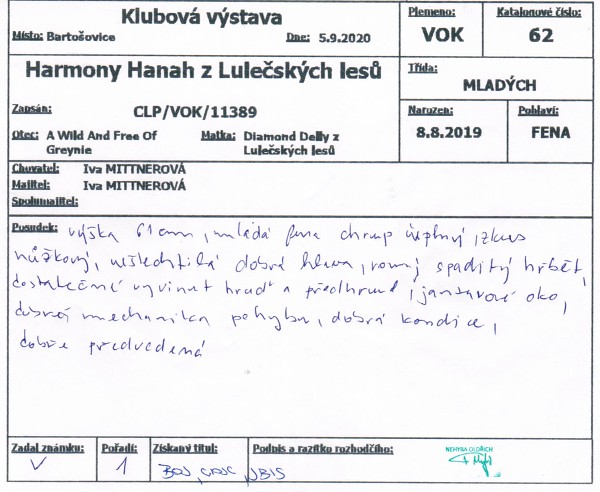 Klubová výstava
Místo: Bartošovice Dne: 5.9.2020
Plemeno: VOK
Katalonové číslo: 62
Harmony Hanah z Lulečských lesů
Třída: MLADÝCH
Zapsán: CLP/VOK/11389
Narozen: 8.8.2019
Pohlaví: FENA
Otec: A Wild And Free Of Greynie
Matka: Diamond Delly z Lulečských lesů
Chovatel: Iva MITTNEROVÁ
Majitel: Iva MITTNEROVÁ
Spolumajitel:
Posudek: výška 61 cm, mladá fena chrup úplný, zkus
nůžkový, ušlechtilá dobrá hlava, rovný spaditý hřbět,
dostatečně vyvinut hruď a předhrudí, jantarové oko,
dobrá mechanika pohybu, dobrá kondice,
dobře předvedená
Zadal známku: V
Pořadí: 1
Získaný titul: BOJ, , NBIS
Podpis a razítko rozhodčího:
NEHYBA OLDŘICH